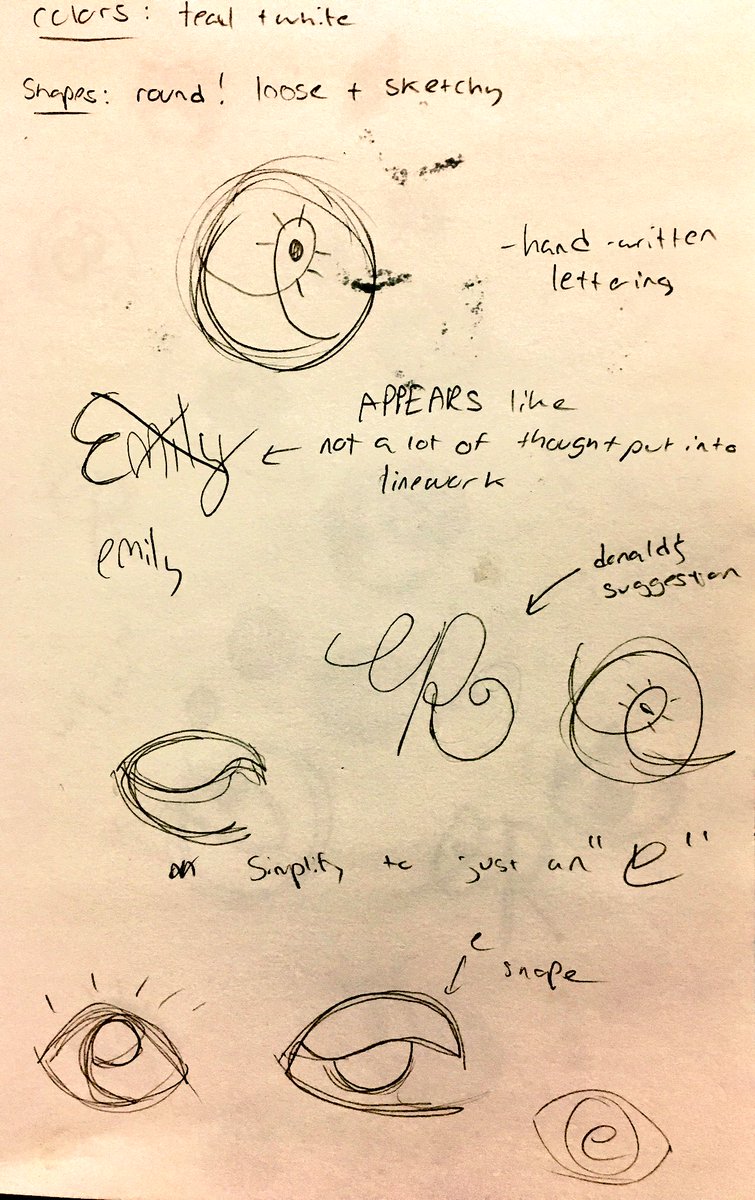 colors: teal + white
Shapes: round! loose + sketchy
- hand-written
lettering
Emily
APPEARS like
not a lot of thought put into
linework
emily
donald's
suggestion
eR
Simplify to just an "e"
e
shape
e